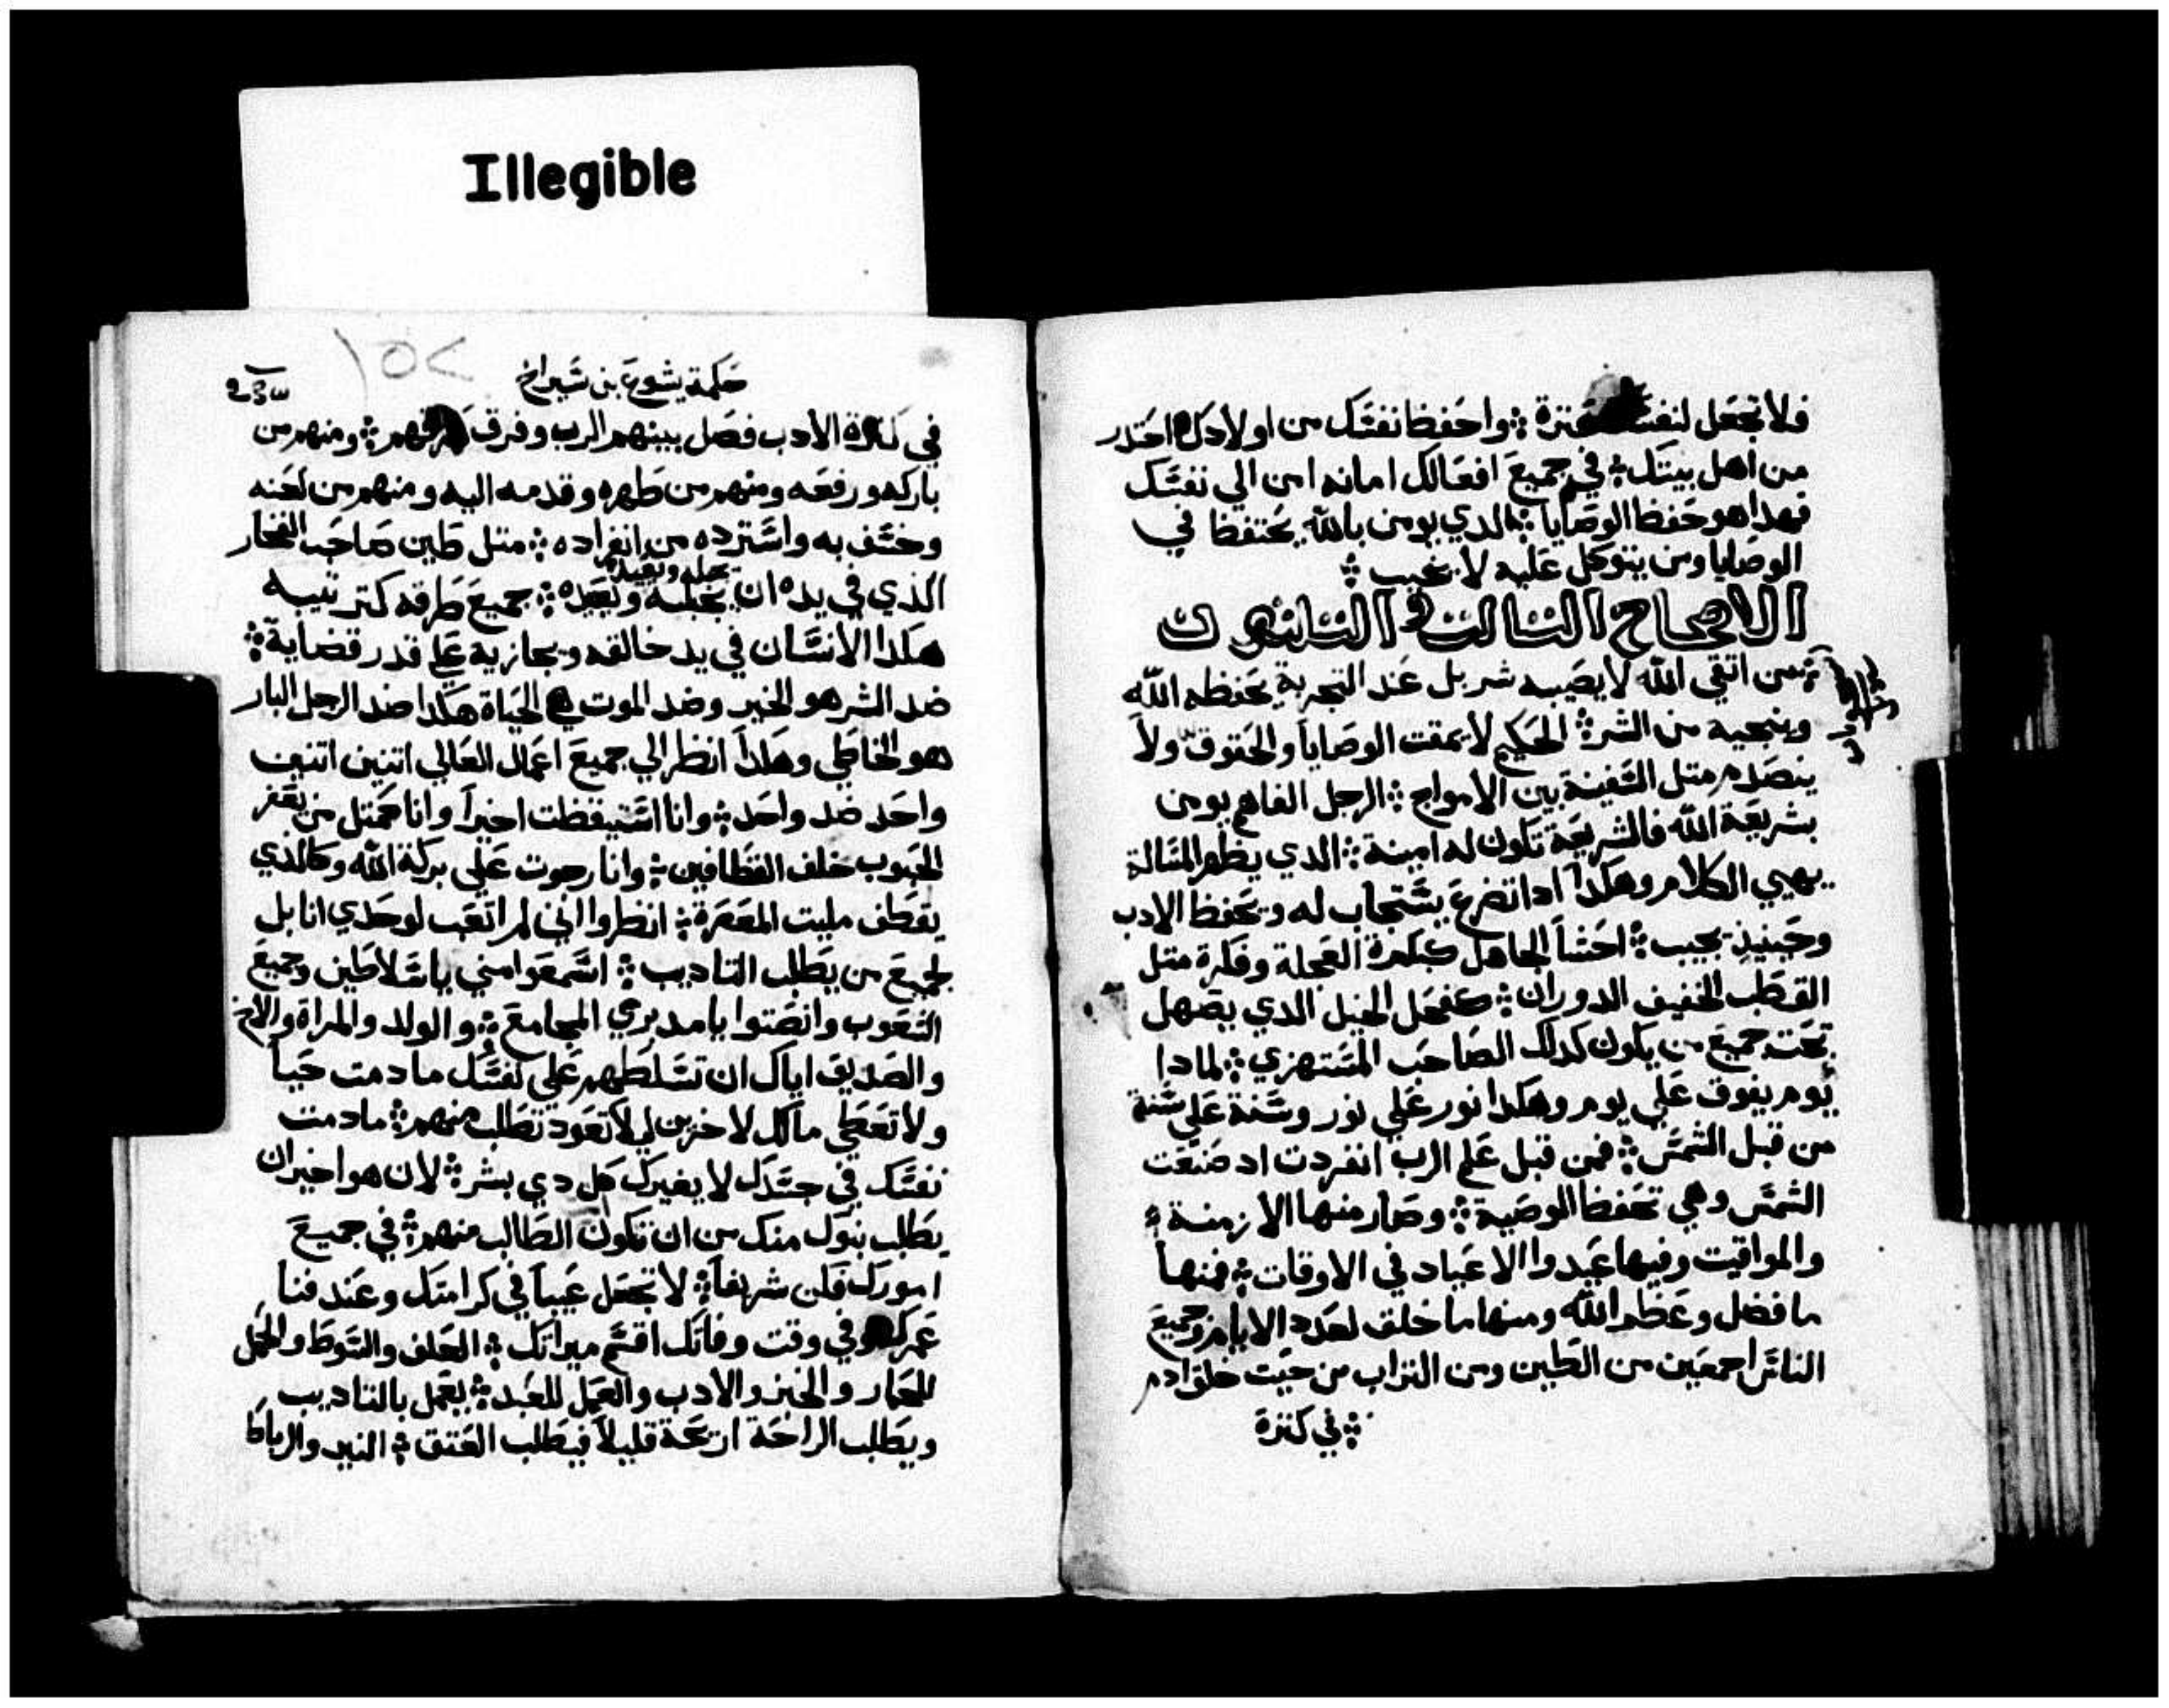 Illegible
فلا تجعل لنفسك عترة ܀ واحفظ نفسك من اولادك احتدر
من اهل بيتك ܀ في جميع افعالك امانه امن الي نفسك
فهدا هو حفظ الوصايا ܀ الدي يومن بالله يحتفظ في
الوصايا ومن يتوكل عليه لا يخيب ܀
الاصحاح التالت و التلتون
܀ من اتقي الله لا يصيبه شر بل عند التجربة يحفظه الله
وينجيه من الشر ܀ الحكيم لا يمقت الوصايا والحقوق ولا
ينصدم متل السفينة بين الامواج ܀ الرجل الفاهم يومن
بشريعة الله فالشريعة تكون له امينة ܀ الدي يظهر المسالة
يهيي الكلام وهكدا ادا تضرع يستجاب له ويحفظ الادب
وحينيد يجيب ܀ احشا الجاهل كبكرة العجلة وفكرة متل
القطب الخفيف الدوران ܀ كفحل الخيل الدي يصهل
تحت جميع من يكون كدلك الصاحب المستهزي ܀ لمادا
يوم يفوق علي يوم وهكدا نور علي نور وسنة علي سنة
من قبل الشمس ܀ فمن قبل علم الرب انفردت اد صنعت
الشمس وهي تحفظ الوصية ܀ وصار منها الازمنة
والمواقيت وفيها عيدوا الاعياد في الاوقات ܀ فمنها
ما فضل وعظم الله ومنها ما خلق لعدد الايام وجميع
الناس اجمعين من الطين ومن التراب من حيت خلق ادم
܀ في كترة
حكمة يشوع بن شيراخ
١٥٢
في كترة الادب فصل بينهم الرب وفرق طرقهم ܀ ومنهم من
باركه ورفعه ومنهم من طهره وقدمه اليه ومنهم من لعنه
وخسف به واسترده من انفراده ܀ متل طين صاحب الفخار
الذي في يده ان يجبله ويعيده ܀ جميع طرقه كترتيبه
هكدا الانسان في يد خالقه ويجازيه علي قدر قضاية ܀
ضد الشر هو الخير وضد الموت هي الحياة هكدا ضد الرجل البار
هو الخاطي وهكدا انظر الي جميع اعمال العالي اتنين اتنين
واحد ضد واحد ܀ وانا استيقظت اخيرا وانا كمتل من يعفر
الحبوب خلف القطافين ܀ وانا رجوت علي بركة الله وكالدي
يقطف مليت المعصرة ܀ انظروا اني لم اتعب لوحدي انا بل
لجميع من يطلب التاديب ܀ اسمعوا مني ياسلاطين وجميع
الشعوب وانصتوا يا مدبري المجامع ܀ والولد والمراة والاخ
والصديق اياك ان تسلطهم علي نفسك ما دمت حيا
ولا تعطي مالك لاخرين ليلا تعود تطلب منهم ܀ مادمت
نفسك في جسدك لا يغيرك كل دي بشر ܀ لان هو اخير ان
يطلب بنوك منك من ان تكون الطالب منهم ܀ في جميع
امورك فكن شريفا ܀ لا تجعل عيبا في كرامتك وعند فنا
عمرك وفي وقت وفاتك اقسم ميراتك ܀ العلف والسوط والحمل
للحمار والخبز والادب والعمل للعبد ܀ يعمل بالتاديب
ويطلب الراحة ارتحة قليلا فيطلب العتق ܀ النير والرباط